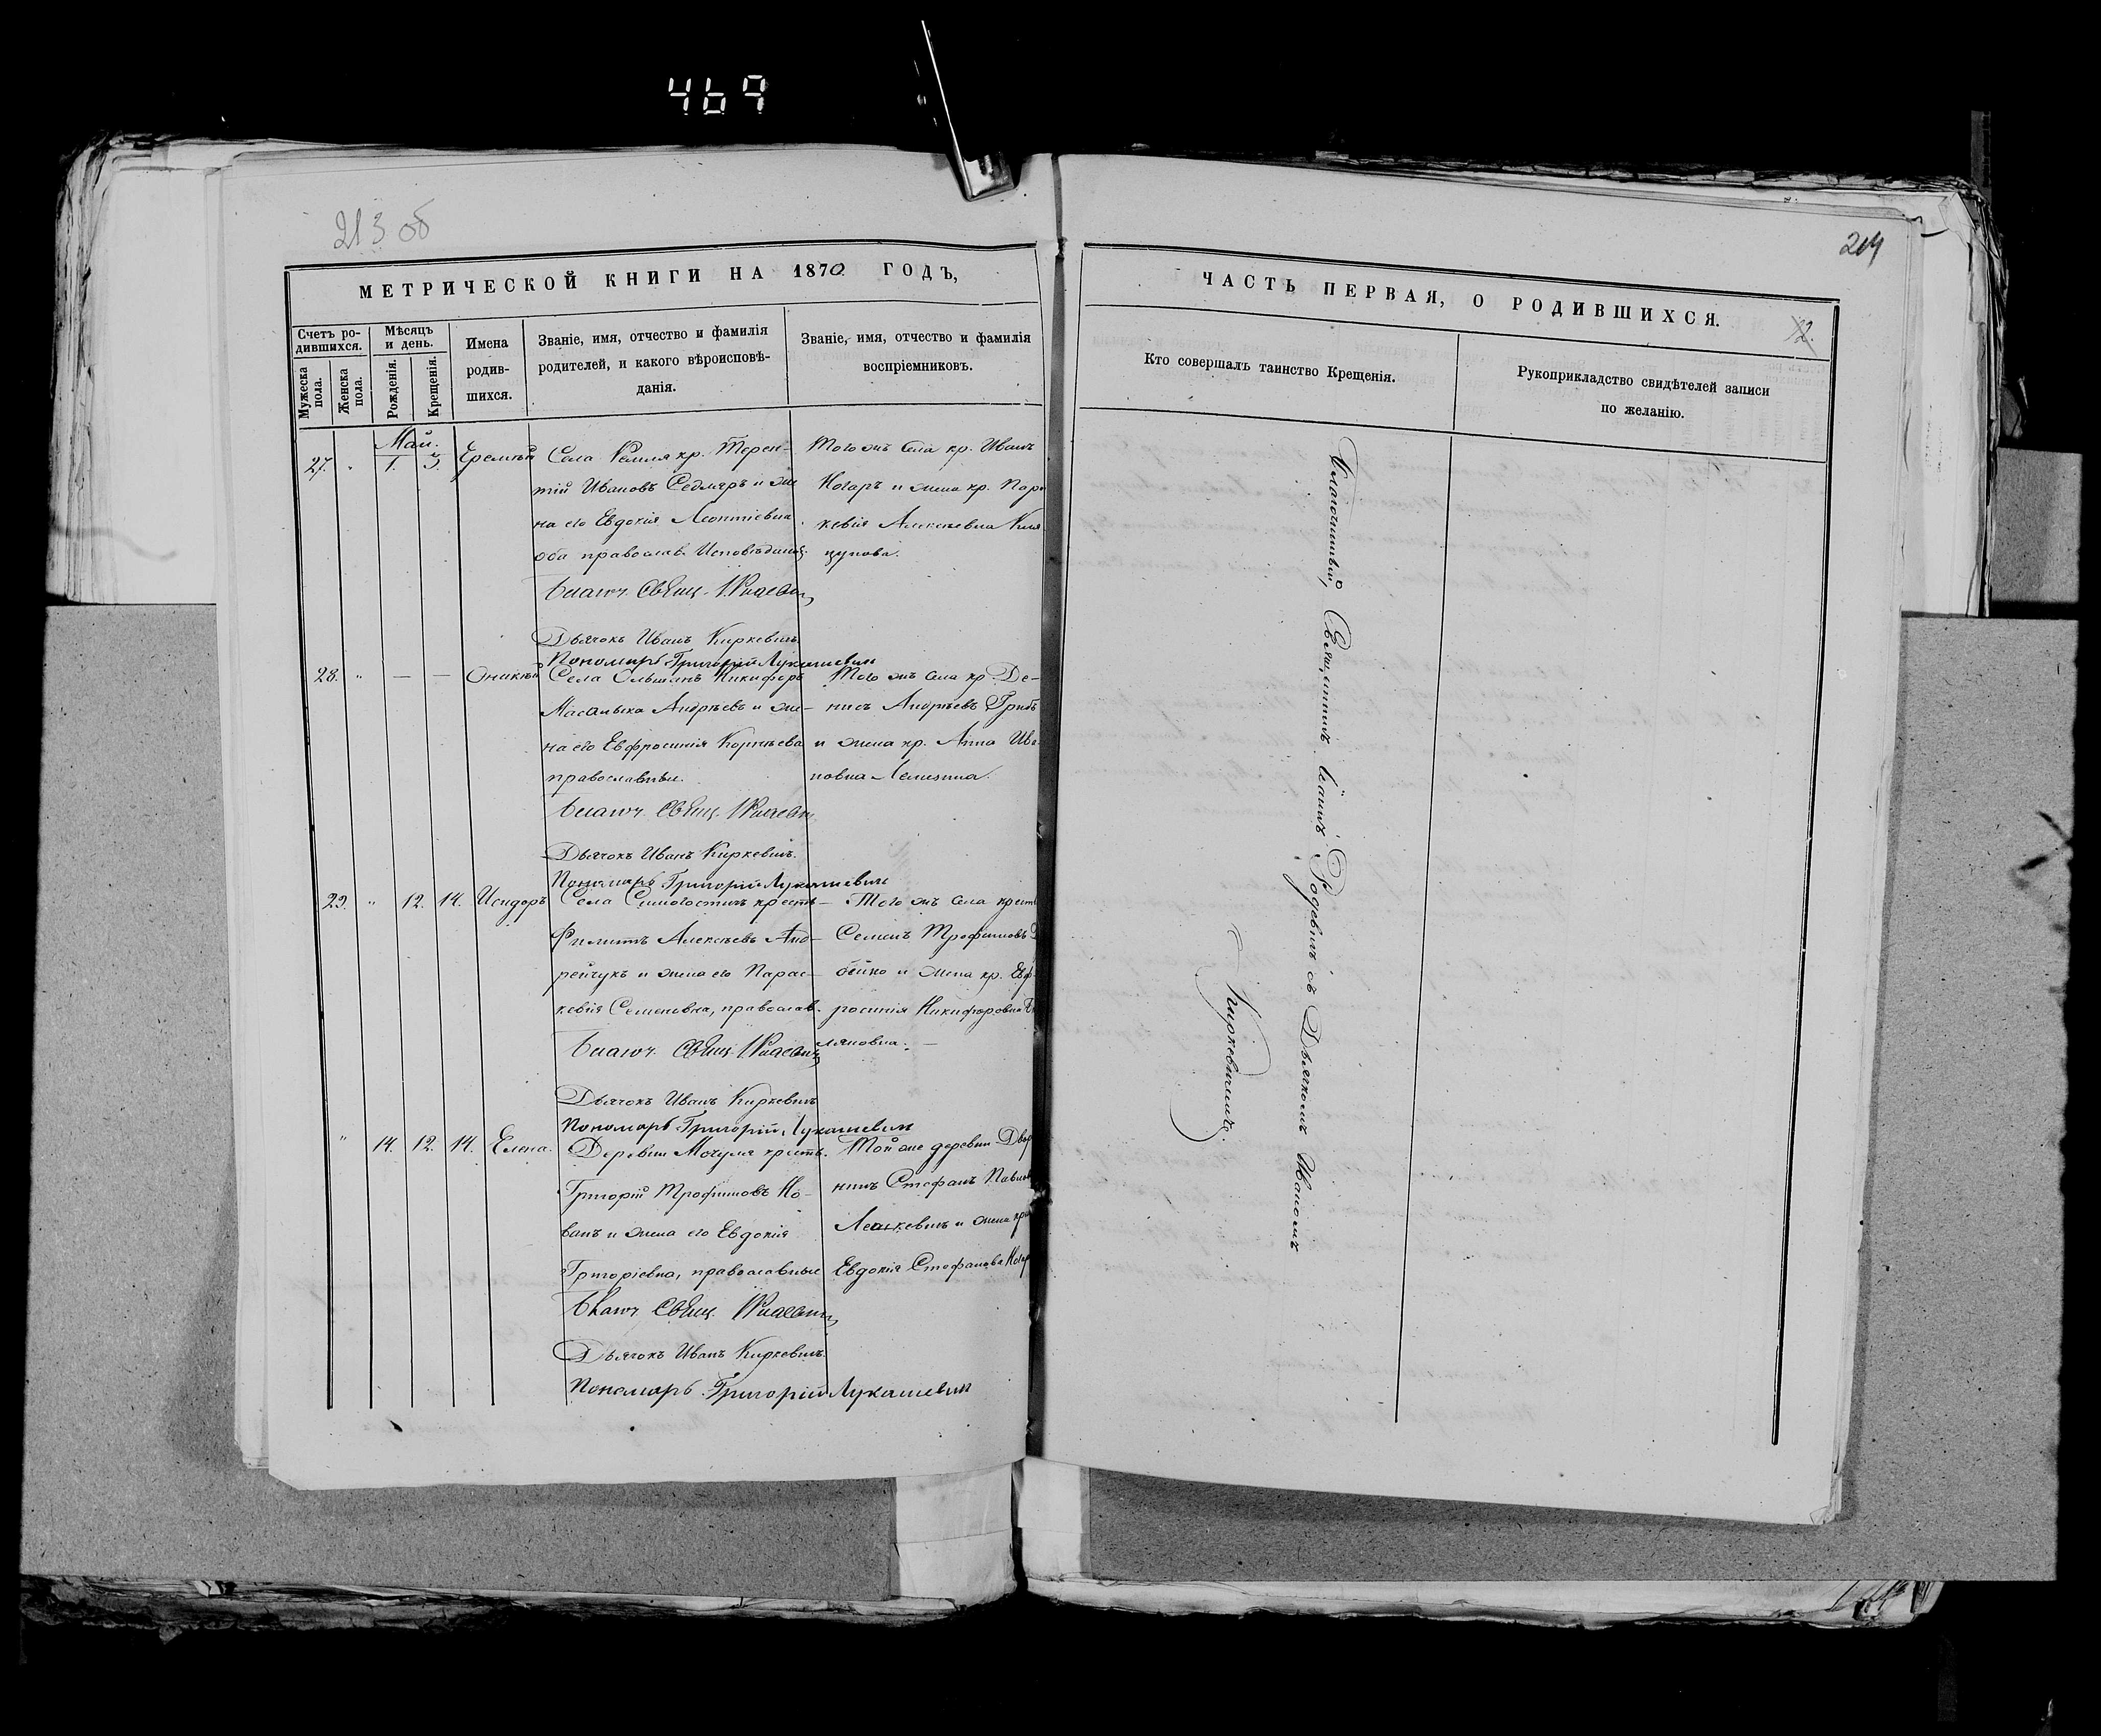 469
213 об
МЕТРИЧЕСКОЙ КНИГИ НА 1870 ГОДЪ,
Счетъ ро-
дившихся.
Мужеска
пола.
Женска
пола.
Мѣсяцъ
и день.
Рожденія.
Крещенія.
Имена
родив-
шихся.
Званіе, имя, отчество и фамилія
родителей, и какого вѣроисповѣ-
данія.
Званіе, имя, отчество и фамилія
воспріемниковъ.
Май.
27. " 1. 3. Еремѣй
Села кр. Терен-
тій Ивановъ Седляръ и же
на его Евдокія Леонтіевна
оба православ. Исповѣданія.
Благоч. Свящ. І. Родевичъ
Дьячокъ Иванъ Киркевичъ
Пономарь Григорій Лукашевич
Того жъ села кр. Иванъ
Когаръ и жена кр. Пара
кевія Алексѣевна
28. " — — Оникій
Села Ольшанъ Никифоръ
Масалыка Андрѣевъ и же-
на его Евфросинія Корнѣева
православные.
Благоч. Свящ. І. Родевичъ
Дьячокъ Иванъ Киркевичъ.
Пономарь Григорій Лукашевич
Того жъ села кр. Де-
нисъ Андрѣевъ Грибъ
и жена кр. Анна Ива-
новна
29. " 12. 14. Исидоръ
Села Симогостичъ крестъ-
Филиппъ Алексѣевъ Анд-
рейчукъ и жена его Парас-
кевія Семеновна, православ.
Благоч. Свящ. І. Родевичъ
Дьячокъ Иванъ Киркевичъ
Пономарь Григорій Лукашевич
Того жъ села крест
Семенъ Трофимовъ
бейко и жена кр. Евф-
росинія Никифоровна
ляновна. —
" 14. 12. 14. Елена.
Деревни Мочуля крестъ.
Григорій Трофимовъ Ко-
ванъ и жена его Евдокія
Григоріевна, православные
Благоч. Свящ. І. Родевичъ
Дьячокъ Иванъ Киркевичъ.
Пономарь Григорій Лукашевич
Той же деревни Двор
нинъ Стефанъ Павлов
Леашкевичъ и жена кр
Евдокія Стефанова
214
ЧАСТЬ ПЕРВАЯ, О РОДИВШИХСЯ.
12.
Кто совершалъ таинство Крещенія.
Рукоприкладство свидѣтелей записи
по желанію.
Благочинный, Священникъ Іоаннъ Родевичъ съ Дьячкомъ Иваномъ
Киркевичемъ.